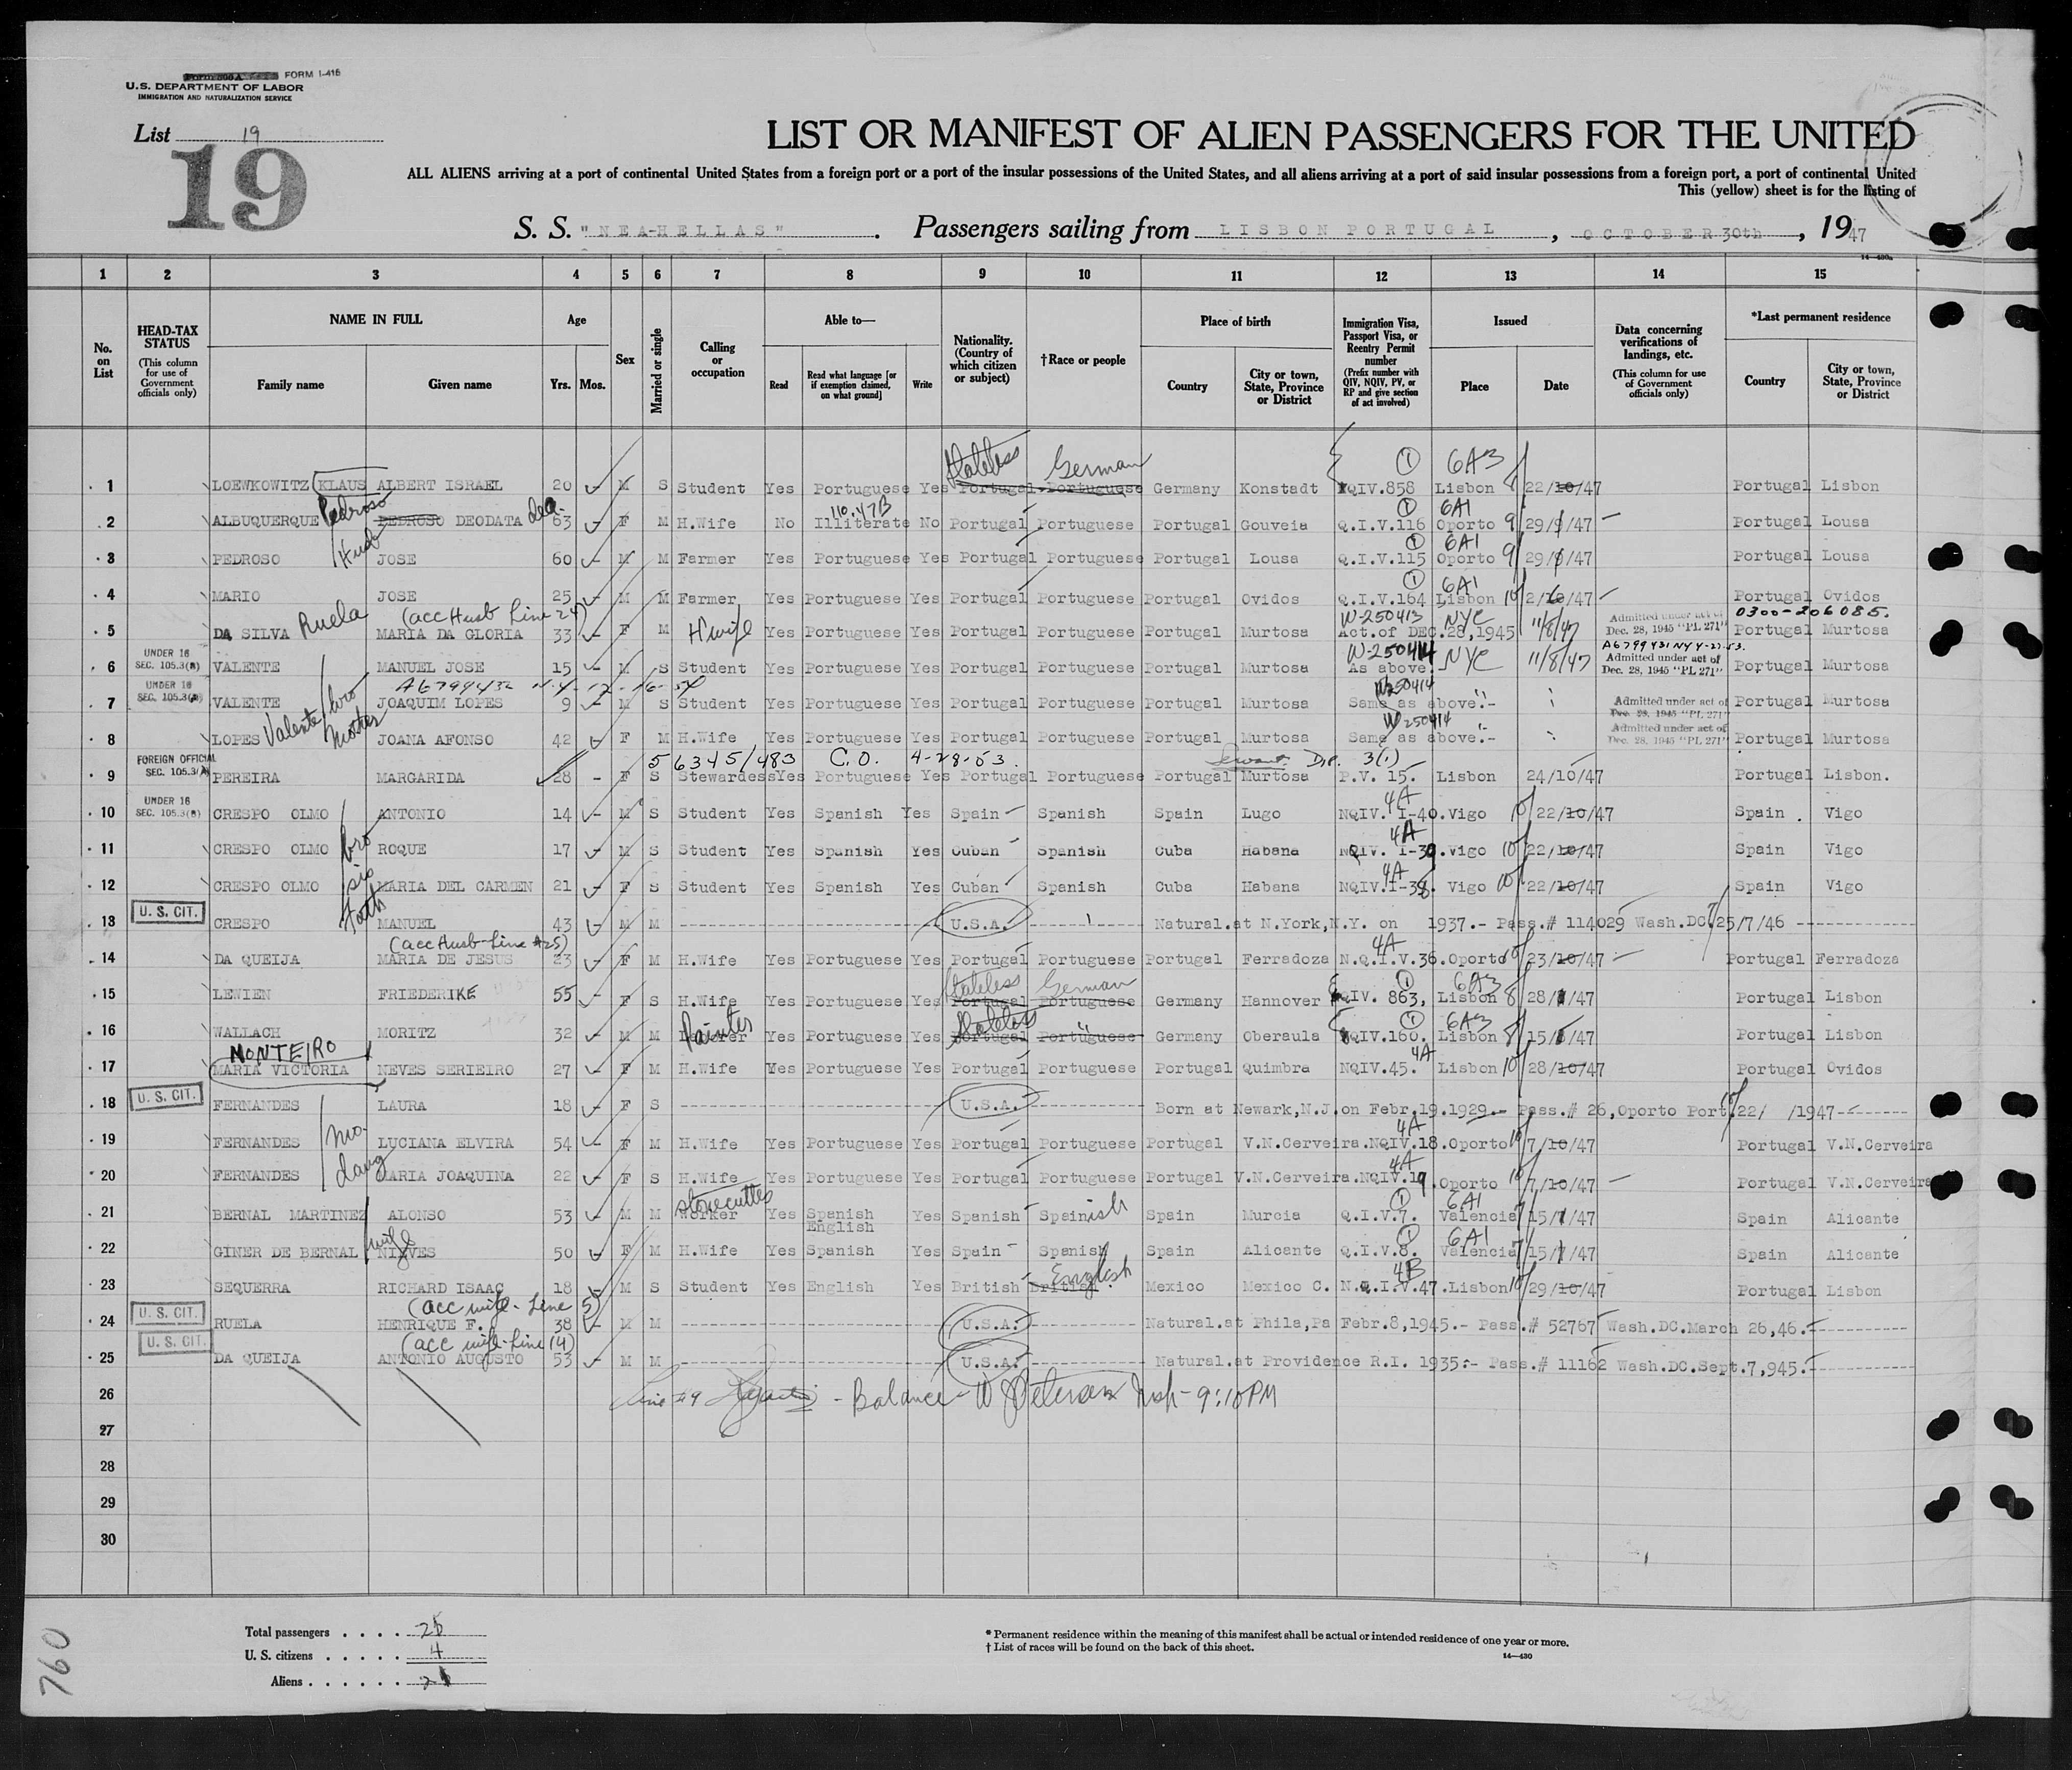 FORM I-415
U.S. DEPARTMENT OF LABOR
IMMIGRATION AND NATURALIZATION SERVICE
List 19
19
LIST OR MANIFEST OF ALIEN PASSENGERS FOR THE UNITED
ALL ALIENS arriving at a port of continental United States from a foreign port or a port of the insular possessions of the United States, and all aliens arriving at a port of said insular possessions from a foreign port, a port of continental United
This (yellow) sheet is for the listing of
S. S. "NEA-HELLAS". Passengers sailing from LISBON PORTUGAL, OCTOBER 30th, 1947
14-430a
1 2 3 4 5 6 7 8 9 10 11 12 13 14 15
No. on List
HEAD-TAX STATUS (This column for use of Government officials only)
NAME IN FULL Family name Given name
Age Yrs. Mos.
Sex
Married or single
Calling or occupation
Able to— Read Read what language [or if exemption claimed, on what ground] Write
Nationality. (Country of which citizen or subject)
†Race or people
Place of birth Country City or town, State, Province or District
Immigration Visa, Passport Visa, or Reentry Permit number (Prefix number with QIV, NQIV, PV, or RP and give section of act involved)
Issued Place Date
Data concerning verifications of landings, etc. (This column for use of Government officials only)
*Last permanent residence Country City or town, State, Province or District
Stateless German ① 6A3
1 LOEWKOWITZ KLAUS ALBERT ISRAEL 20 M S Student Yes Portuguese Yes Portugal Portuguese Germany Konstadt QIV.858 Lisbon 22/10/47 Portugal Lisbon
Pedroso dea. 110.47B ① 6A1
2 ALBUQUERQUE PEDROSO DEODATA 63 F M H.Wife No Illiterate No Portugal Portuguese Portugal Gouveia Q.I.V.116 Oporto 29/9/47 Portugal Lousa
Husb ① 6A1
3 PEDROSO JOSE 60 M M Farmer Yes Portuguese Yes Portugal Portuguese Portugal Lousa Q.I.V.115 Oporto 29/9/47 Portugal Lousa
① 6A1
4 MARIO JOSE 25 M M Farmer Yes Portuguese Yes Portugal Portuguese Portugal Ovidos Q.I.V.164 Lisbon 2/10/47 Portugal Ovidos
Ruela (acc Husb Line 24) W-250413 NYC Admitted under act of 0300-206085.
5 DA SILVA MARIA DA GLORIA 33 F M H'wife Yes Portuguese Yes Portugal Portuguese Portugal Murtosa Act.of DEC.28,1945 11/8/47 Dec. 28, 1945 "PL 271" Portugal Murtosa
UNDER 16 SEC. 105.3(a) W-250414 A6799431 NY 4-27-53.
6 VALENTE MANUEL JOSE 15 M S Student Yes Portuguese Yes Portugal Portuguese Portugal Murtosa As above. NYC 11/8/47 Admitted under act of Dec. 28, 1945 "PL 271" Portugal Murtosa
UNDER 16 SEC. 105.3(a) A6799432 bro W250414
7 VALENTE JOAQUIM LOPES 9 M S Student Yes Portuguese Yes Portugal Portuguese Portugal Murtosa Same as above.- Admitted under act of Dec. 28, 1945 "PL 271" Portugal Murtosa
Valente mother W250414
8 LOPES JOANA AFONSO 42 F M H.Wife Yes Portuguese Yes Portugal Portuguese Portugal Murtosa Same as above.- Admitted under act of Dec. 28, 1945 "PL 271" Portugal Murtosa
FOREIGN OFFICIAL SEC. 105.3(A) 56345/483 C.O. 4-28-53. Servant Dip. 3(1)
9 PEREIRA MARGARIDA 28 - F S Stewardess Yes Portuguese Yes Portugal Portuguese Portugal Murtosa P.V. 15. Lisbon 24/10/47 Portugal Lisbon.
UNDER 16 SEC. 105.3(a) 4A
10 CRESPO OLMO ANTONIO 14 M S Student Yes Spanish Yes Spain Spanish Spain Lugo NQIV. I-40.Vigo 22/10/47 Spain . Vigo
bro 4A
11 CRESPO OLMO ROQUE 17 M S Student Yes Spanish Yes Cuban Spanish Cuba Habana NQIV. I-39.Vigo 22/10/47 Spain Vigo
sis 4A
12 CRESPO OLMO MARIA DEL CARMEN 21 F S Student Yes Spanish Yes Cuban Spanish Cuba Habana NQIV.I-38. Vigo 22/10/47 Spain Vigo
U. S. CIT. Fath
13 CRESPO MANUEL 43 M M U.S.A. Natural.at N.York,N.Y. on 1937.- Pass.# 114029 Wash.DC.25/7/46
(acc Husb-Line #25) 4A
14 DA QUEIJA MARIA DE JESUS 23 F M H.Wife Yes Portuguese Yes Portugal Portuguese Portugal Ferradoza N.Q.I.V.36.Oporto 23/10/47 Portugal Ferradoza
Stateless German ① 6A3
15 LEWIEN FRIEDERIKE 55 F S H.Wife Yes Portuguese Yes Portugal Portuguese Germany Hannover QIV. 863, Lisbon 28/ /47 Portugal Lisbon
Painter Stateless " ① 6A3
16 WALLACH MORITZ 32 M M Yes Portuguese Yes Portugal Portuguese Germany Oberaula QIV.160. Lisbon 15/ /47 Portugal Lisbon
MONTEIRO 4A
17 MARIA VICTORIA NEVES SERIEIRO 27 F M H.Wife Yes Portuguese Yes Portugal Portuguese Portugal Quimbra NQIV.45. Lisbon 28/10/47 Portugal Ovidos
U. S. CIT.
18 FERNANDES LAURA 18 F S U.S.A. Born at Newark,N.J.on Febr.19.1929.- Pass.# 26,Oporto Port.22/ /1947
mo. 4A
19 FERNANDES LUCIANA ELVIRA 54 F M H.Wife Yes Portuguese Yes Portugal Portuguese Portugal V.N.Cerveira.NQIV.18.Oporto 7/10/47 Portugal V.N.Cerveira
daug 4A
20 FERNANDES MARIA JOAQUINA 22 F S H.Wife Yes Portuguese Yes Portugal Portuguese Portugal V.N.Cerveira.NQIV.19.Oporto 7/10/47 Portugal V.N.Cerveira
stonecutter ① 6A1
21 BERNAL MARTINEZ ALONSO 53 M M Worker Yes Spanish English Yes Spanish Spainish Spain Murcia Q.I.V.7. Valencia 15/7/47 Spain Alicante
wife ① 6A1
22 GINER DE BERNAL NIEVES 50 F M H.Wife Yes Spanish Yes Spain Spanish Spain Alicante Q.I.V.8. Valencia 15/7/47 Spain Alicante
English 4B
23 SEQUERRA RICHARD ISAAC 18 M S Student Yes English Yes British British. Mexico Mexico C. N.Q.I.V.47.Lisbon 29/10/47 Portugal Lisbon
U. S. CIT. (acc wife - Line 5)
24 RUELA HENRIQUE F. 38 M M U.S.A. Natural.at Phila,Pa Febr.8,1945.- Pass.# 52767 Wash.DC.March 26,46.-
U. S. CIT. (acc wife-Line 14)
25 DA QUEIJA ANTONIO AUGUSTO 53 M M U.S.A. Natural.at Providence R.I. 1935.- Pass.# 11162 Wash.DC.Sept.7,945.-
26 Line #9 - Balance - W Petersen Insp - 9:10 PM
27
28
29
30
Total passengers . . . . 25
U. S. citizens . . . . . 4
Aliens . . . . . . 21
* Permanent residence within the meaning of this manifest shall be actual or intended residence of one year or more.
† List of races will be found on the back of this sheet.
14-430
760